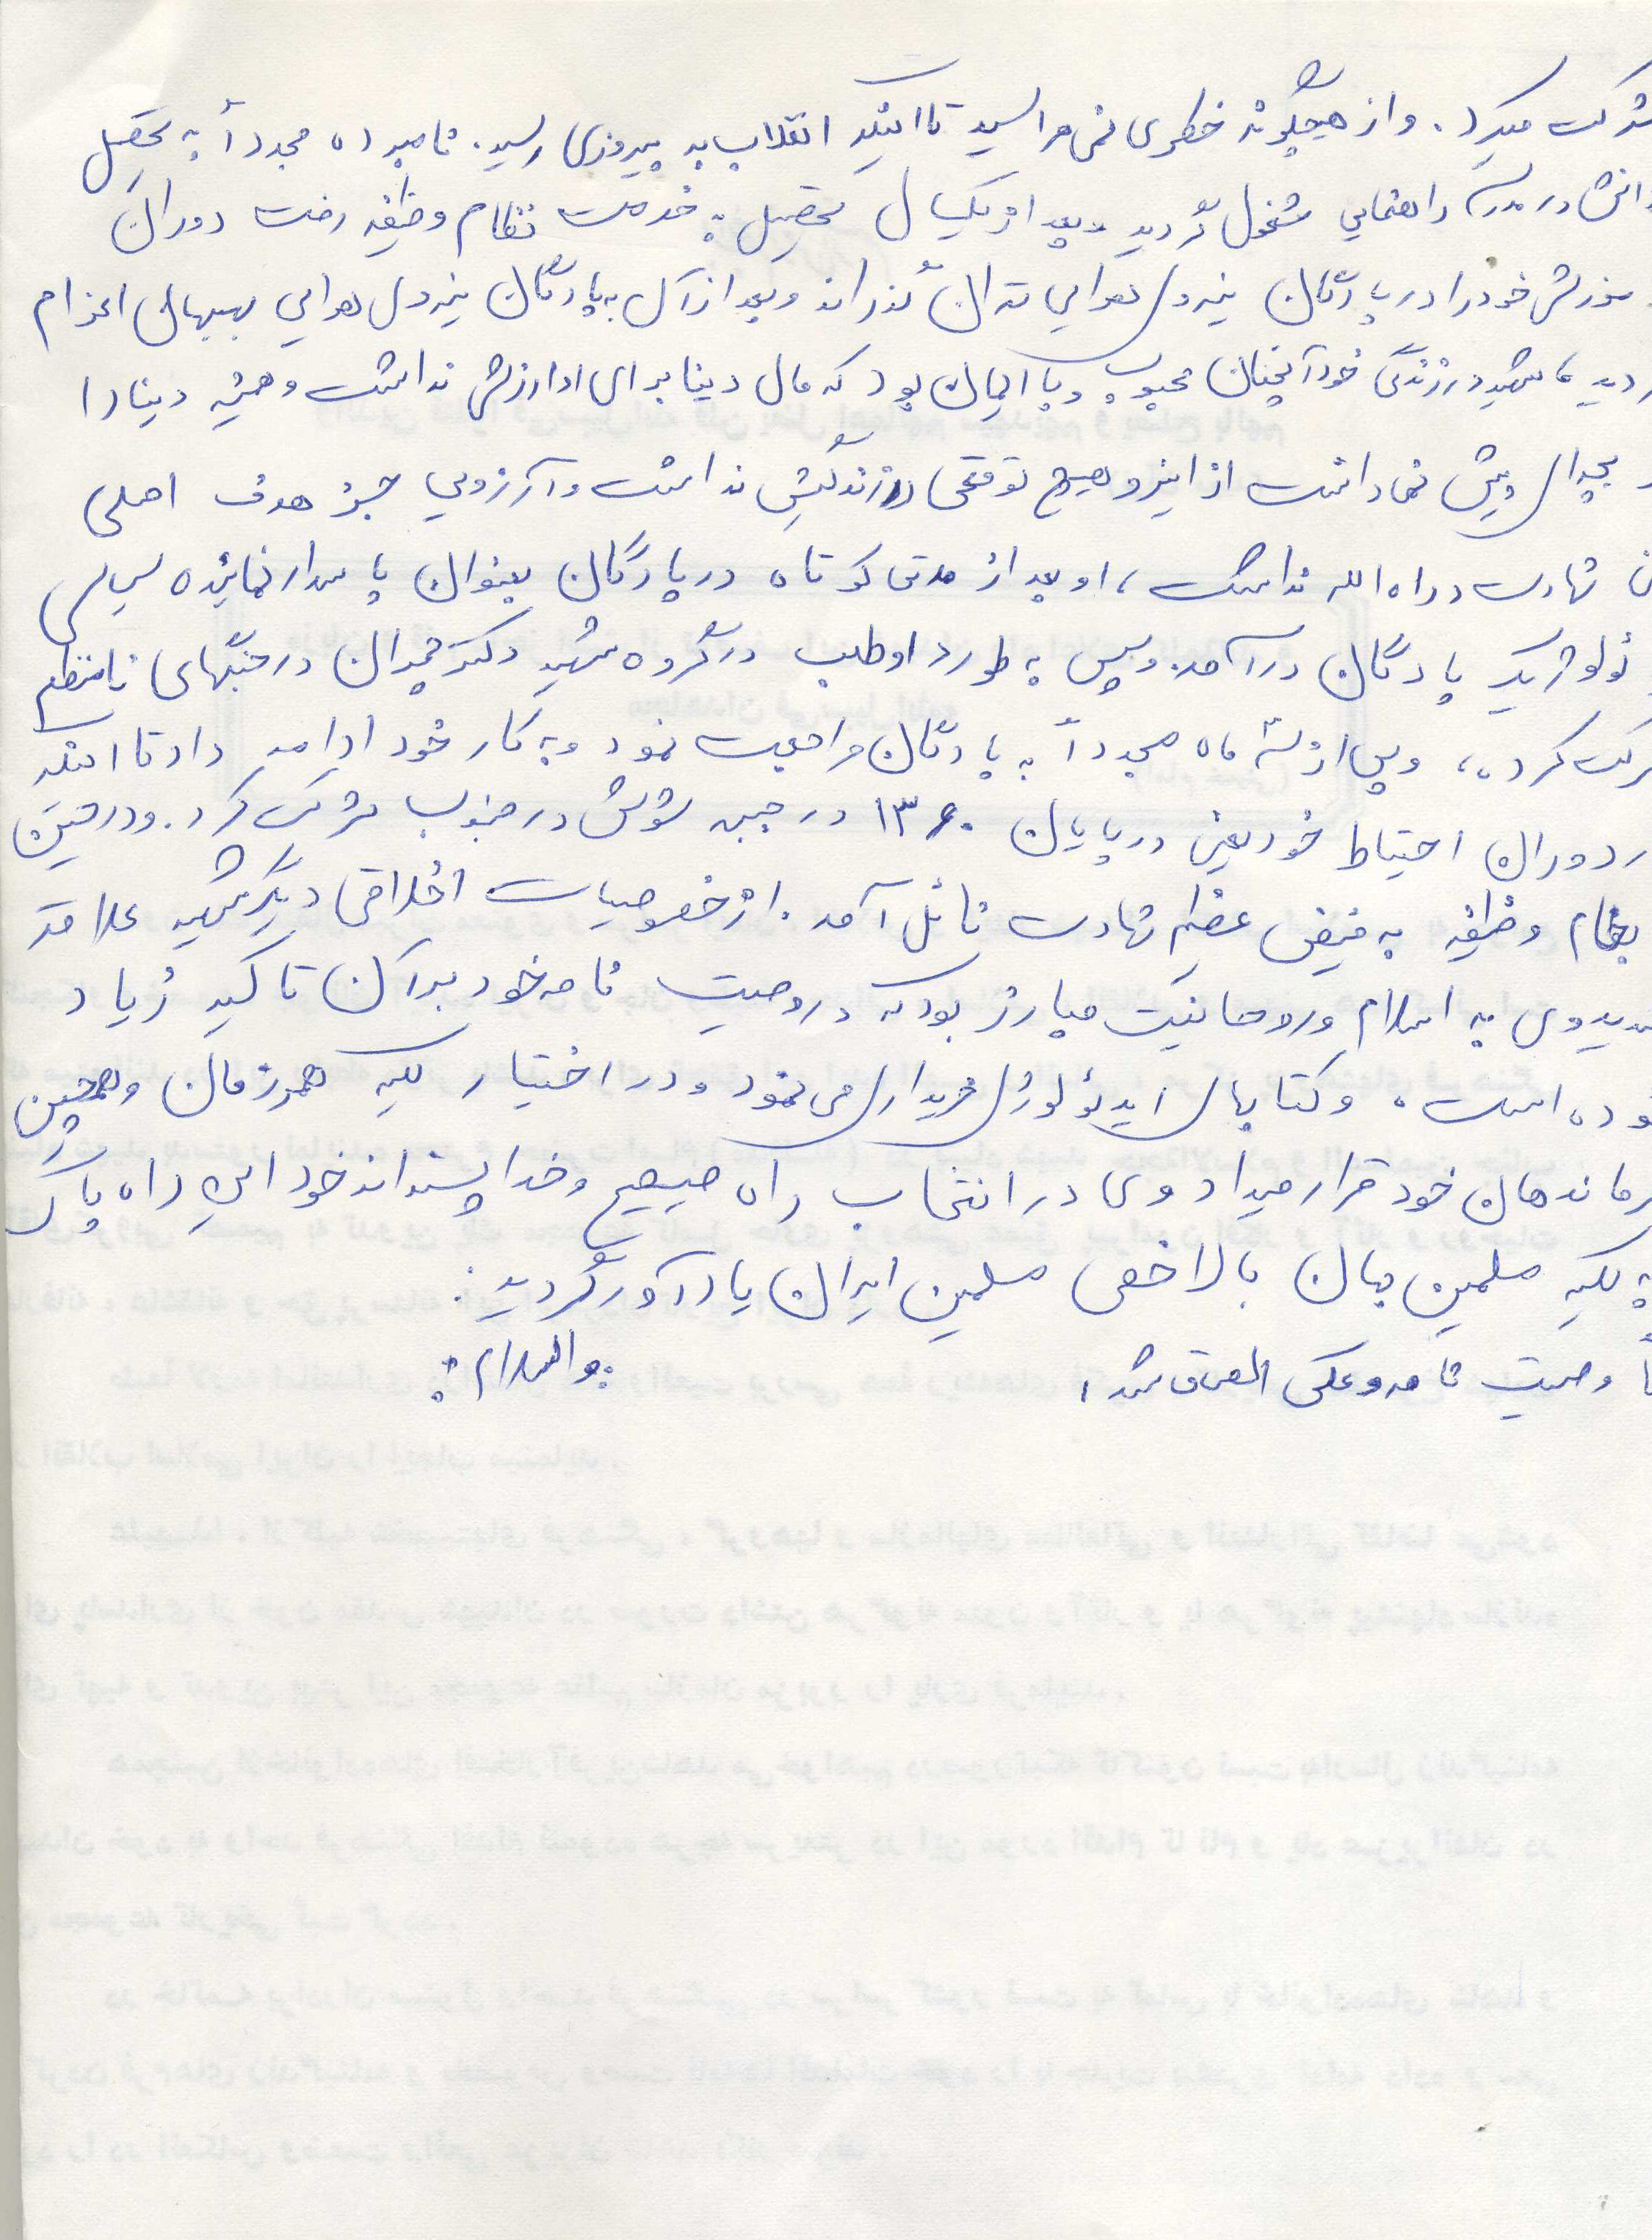 شرکت میکرد. و از هیچگونه خطری نمی هراسید تا اینکه انقلاب به پیروزی رسید. نامبرده مجدداً به تحصیل
دانش در مدرسه راهنمایی مشغول گردید و بعد از یکسال تحصیل به خدمت نظام وظیفه رفت دوران
موزش خود را در پادگان نیروی هوایی تهران گذراند و بعد از آن به پادگان نیروی هوایی بهبهان اعزام
ردید، شهید در زندگی خود آنچنان محبوب و با ایمان بود که مال دینا برای او ارزش نداشت و همیشه دینا را
بیش نمی دانست از اینرو هیچ توقعی در زندگیش نداشت و آرزویی جز هدف اصلی
ن شهادت در راه الله نداشت، او بعد از مدتی کوتاه در پادگان بعنوان پاسدار نماینده سیاسی
ئولوژیک پادگان در آمد. و سپس به طور داوطلب در گروه شهید دکتر چمران در جنگهای نامنظم
رکت کرد،، و پس از سه ماه مجدداً به پادگان مراجعت نمود و به کار خود ادامه داد تا اینکه
ر دوران احتیاط خود یعنی در پایان ۱۳۶۰ در جبهه شوش در جنوب شرکت کرد. و در حین
نظام وظیفه به فیض عظیم شهادت نائل آمد. از خصوصیات اخلاقی دیگر شهید علاقه
دید وی به اسلام و روحانیت مبارز بود که در وصیت نامه خود بر آن تاکید زیاد
وده است، و کتابهای ایدئولوژی خریداری می نمود و در اختیار کلیه همرزمان و همچنین
رماندهان خود قرار میداد وی در انتخاب راه صیحیح و خدا پسندانه خود این راه پاک
به کلیه مسلمین جهان بالاخص مسلمین ایران یادآور گردید.
وصیت نامه و عکس الصاق شد، والسلام